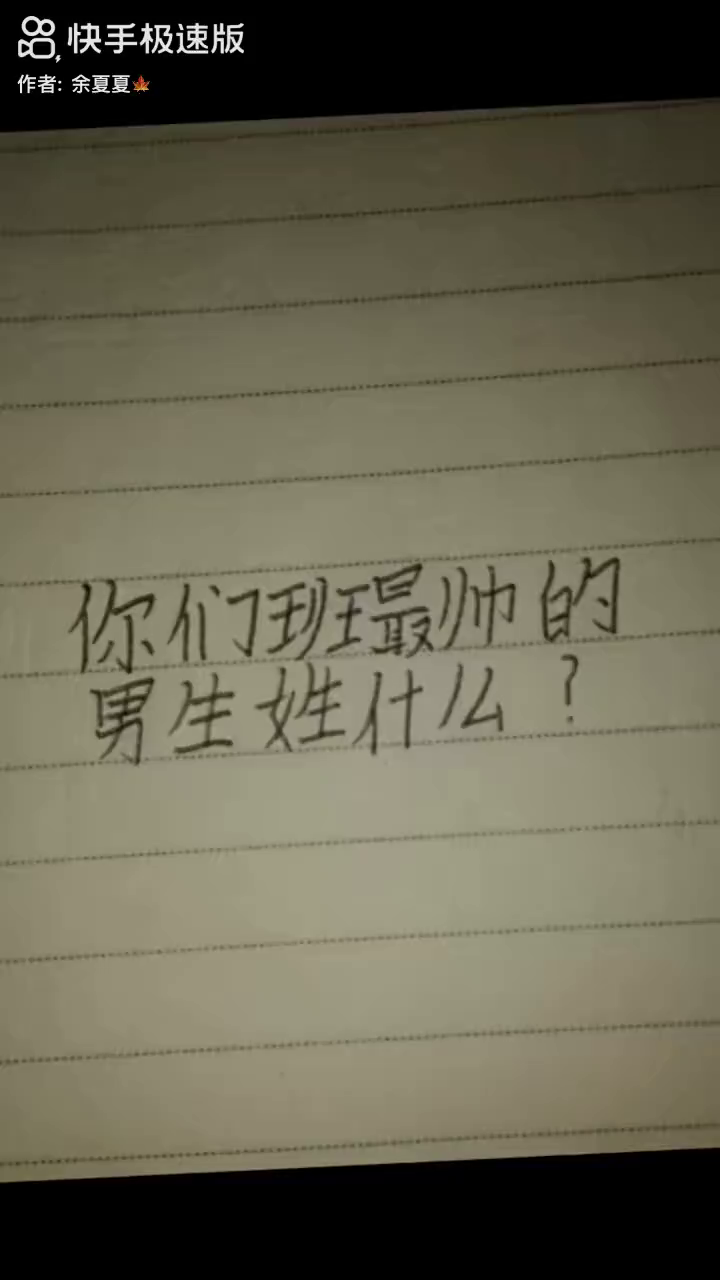 快手极速版
作者: 余夏夏🍁
你们班最帅的
男生姓什么?